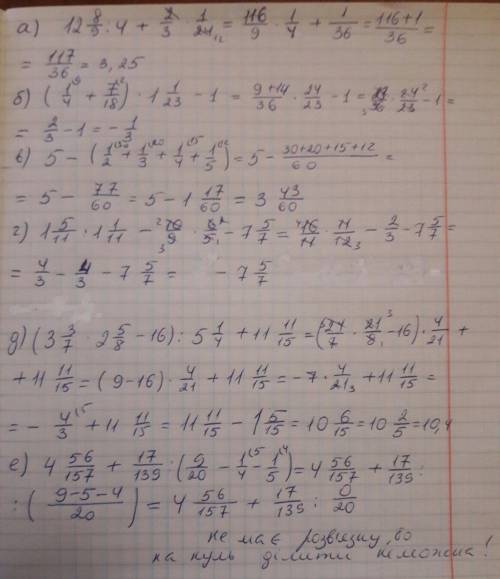 а) 12 8/9 : 4 + 2/3 · 1/24₁₂ = 116/9 · 1/4 + 1/36 = (116+1)/36 =
= 117/36 = 3,25
б) (1/4⁹ + 7/18²) · 1 1/23 − 1 = (9+14)/36 · 24/23 − 1 = 23/36₃ · 24²/23 − 1 =
= 2/3 − 1 = − 1/3
в) 5 − (1/2³⁰ + 1/3²⁰ + 1/4¹⁵ + 1/5¹²) = 5 − (30+20+15+12)/60 =
= 5 − 77/60 = 5 − 1 17/60 = 3 43/60
г) 1 5/11 : 1 1/11 − ²10/9₃ · 6²/5₁ − 7 5/7 = ⁴16/11 · 11/12₃ − 2/3 − 7 5/7 =
= 4/3 − 4/3 − 7 5/7 = − 7 5/7
д) (3 3/7 · 2 5/8 − 16) : 5 1/4 + 11 11/15 = (³24/7 · 21³/8₁ − 16) · 4/21 +
+ 11 11/15 = (9−16) · 4/21 + 11 11/15 = −7 · 4/21₃ + 11 11/15 =
= − 4/3⁵ + 11 11/15 = 11 11/15 − 1 5/15 = 10 6/15 = 10 2/5 = 10,4
е) 4 56/157 + 17/139 : (9/20 − 1/4⁵ − 1/5⁴) = 4 56/157 + 17/139 :
: ((9−5−4)/20) = 4 56/157 + 17/139 : 0/20
не має розвязку, бо
на нуль ділити неможна!